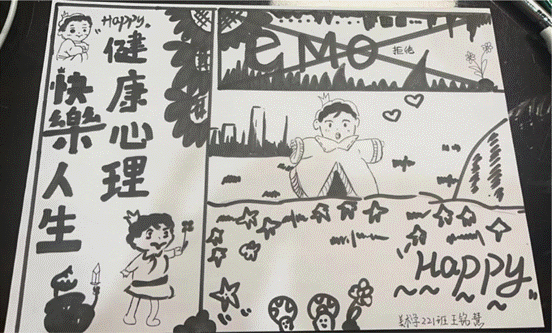 Happy。
健康心理
快樂人生
eMO
拒绝
"Happy"
美术学221班 王